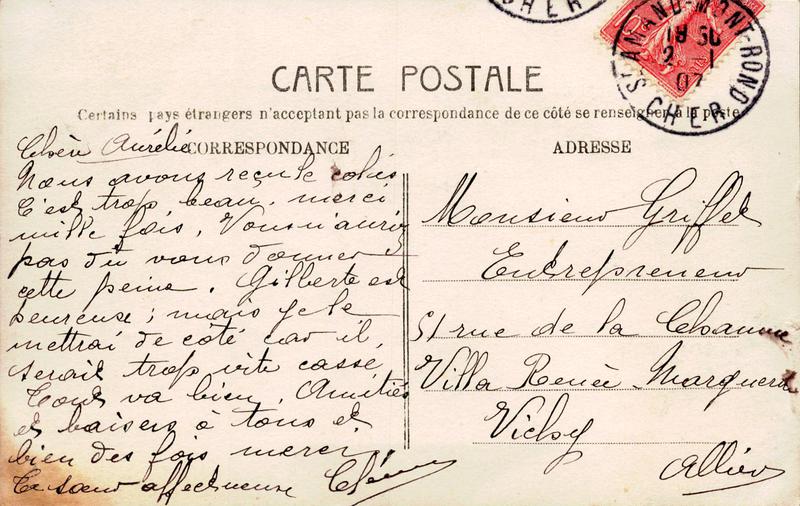 CHER
ST AMAND-MONT-ROND
19 50
2 - 1
07
CHER
CARTE POSTALE
Certains pays étrangers n'acceptant pas la correspondance de ce côté se renseigner à la poste
CORRESPONDANCE
ADRESSE
Chère Aurélie
Nous avons reçu le colis
C'est trop beau, merci
mille fois, Vous n'auriez
pas dû vous donner
cette peine. Gilberte est
heureuse ; mais je le
mettrai de côté car il
serait trop vite cassé
Tout va bien. Amitiés
et baisers à tous et
bien des fois merci
Ta sœur affectueuse
Monsieur Griffet
Entrepreneur
51 rue de la Chaume
Villa Renée
Vichy
Allier